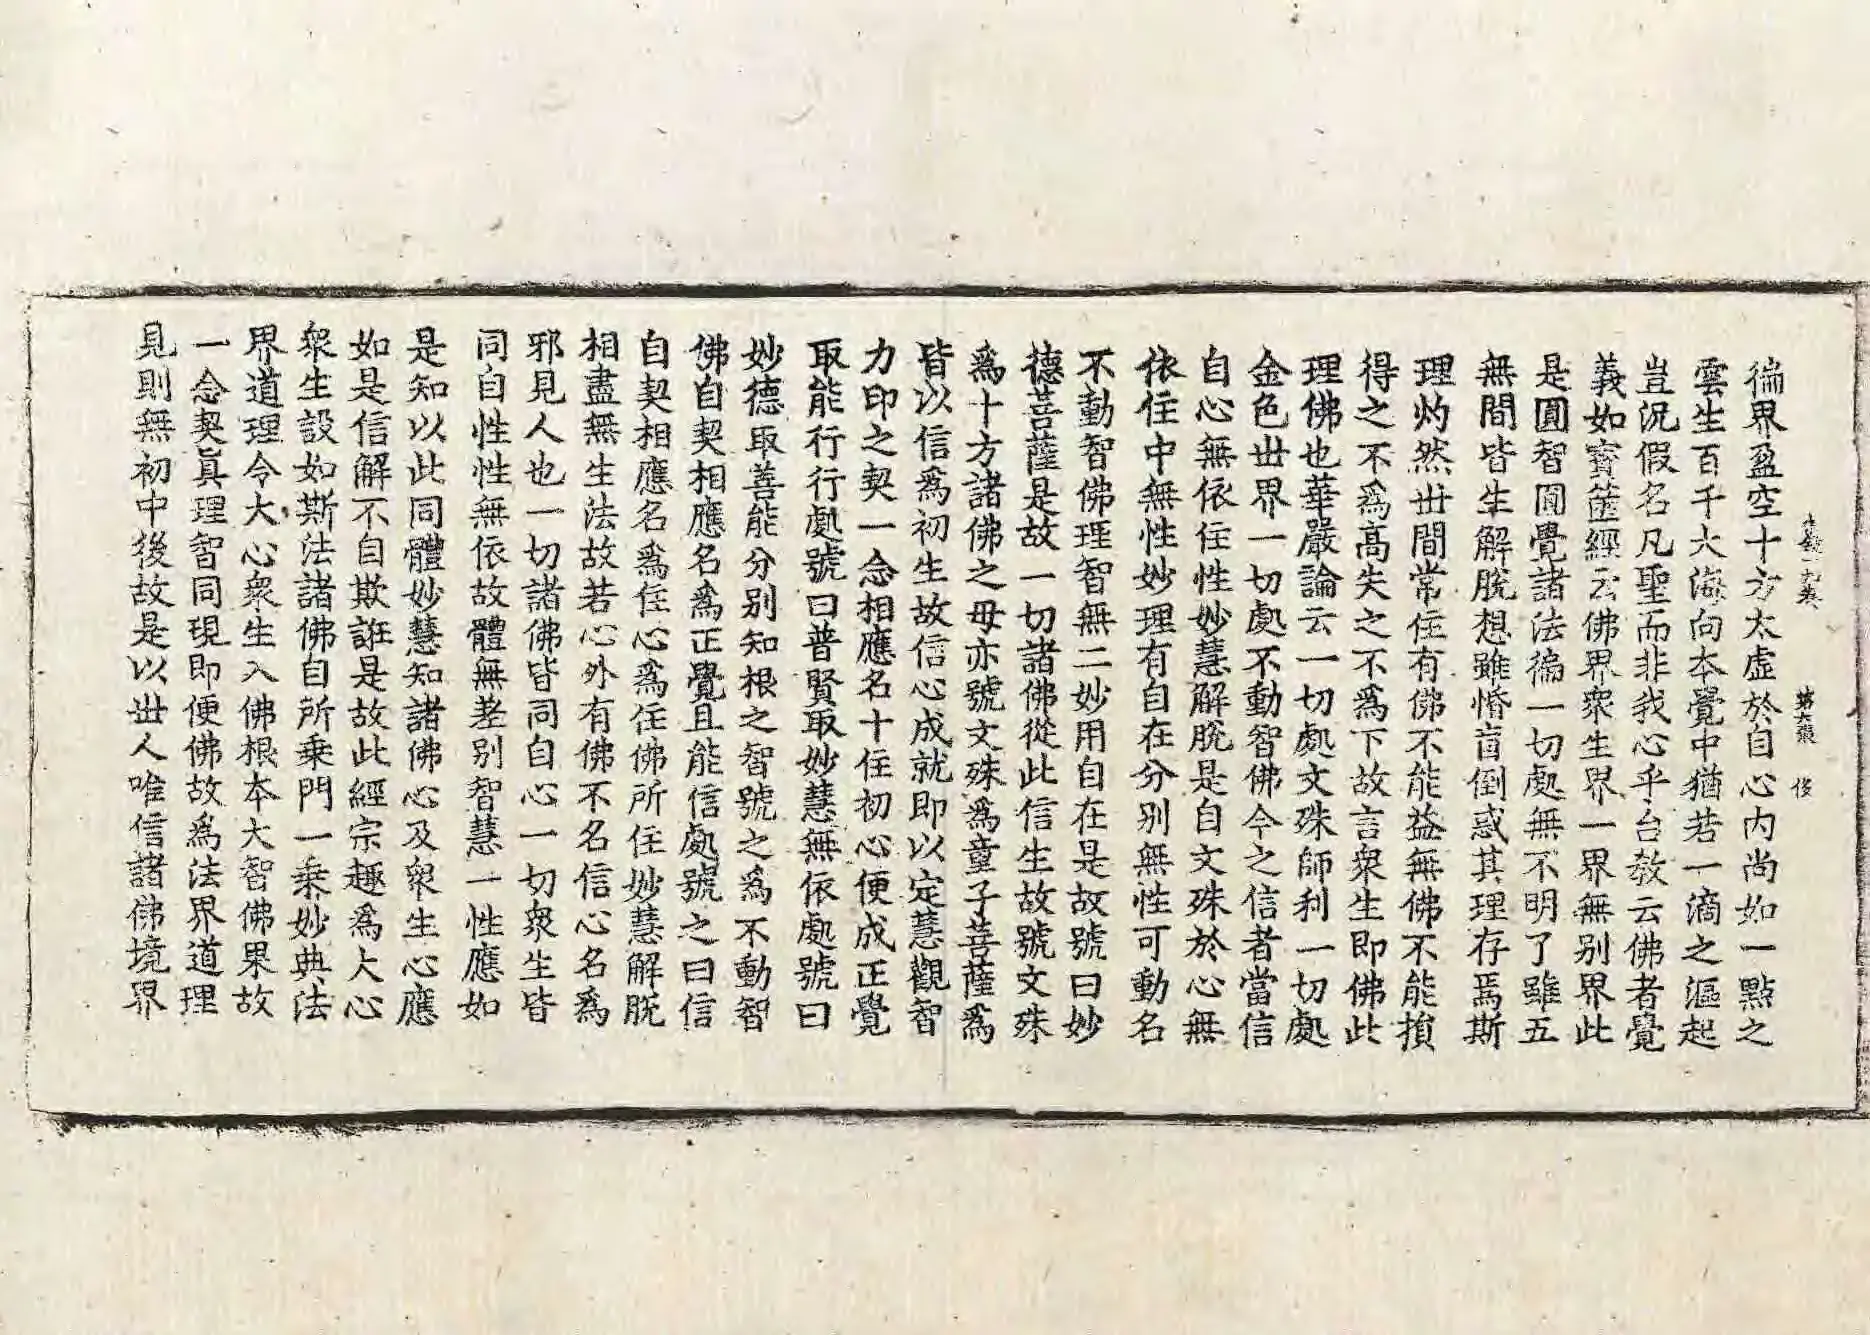 徧界盈空十方太虛於自心內尚如一點之
雲生百千大海向本覺中猶若一滴之漚起
豈況假名凡聖而非我心乎台教云佛者覺
義如寶篋經云佛界衆生界一界無別界此
是圓智圓覺諸法徧一切處無不明了雖五
無間皆生解脫想雖惛盲倒惑其理存焉斯
理灼然世間常住有佛不能益無佛不能損
得之不爲高失之不爲下故言衆生即佛此
理佛也華嚴論云一切處文殊師利一切處
金色世界一切處不動智佛令之信者當信
自心無依住性妙慧解脫是自文殊於心無
依住中無性妙理有自在分別無性可動名
不動智佛理智無二妙用自在是故號曰妙
德菩薩是故一切諸佛從此信生故號文殊
爲十方諸佛之母亦號文殊爲童子菩薩爲
皆以信爲初生故信心成就即以定慧觀智
力印之契一念相應名十住初心便成正覺
取能行行處號曰普賢取妙慧無依處號曰
妙德取善能分別知根之智號之爲不動智
佛自契相應名爲正覺且能信處號之曰信
自契相應名爲住心爲住佛所住妙慧解脫
相盡無生法故若心外有佛不名信心名爲
邪見人也一切諸佛皆同自心一切衆生皆
同自性性無依故體無差別智慧一性應如
是知以此同體妙慧知諸佛心及衆生心應
如是信解不自欺誑是故此經宗趣爲大心
衆生設如斯法諸佛自所乘門一乘妙典法
界道理令大心衆生入佛根本大智佛果故
一念契眞理智同現即便佛故爲法界道理
見則無初中後故是以世人唯信諸佛境界